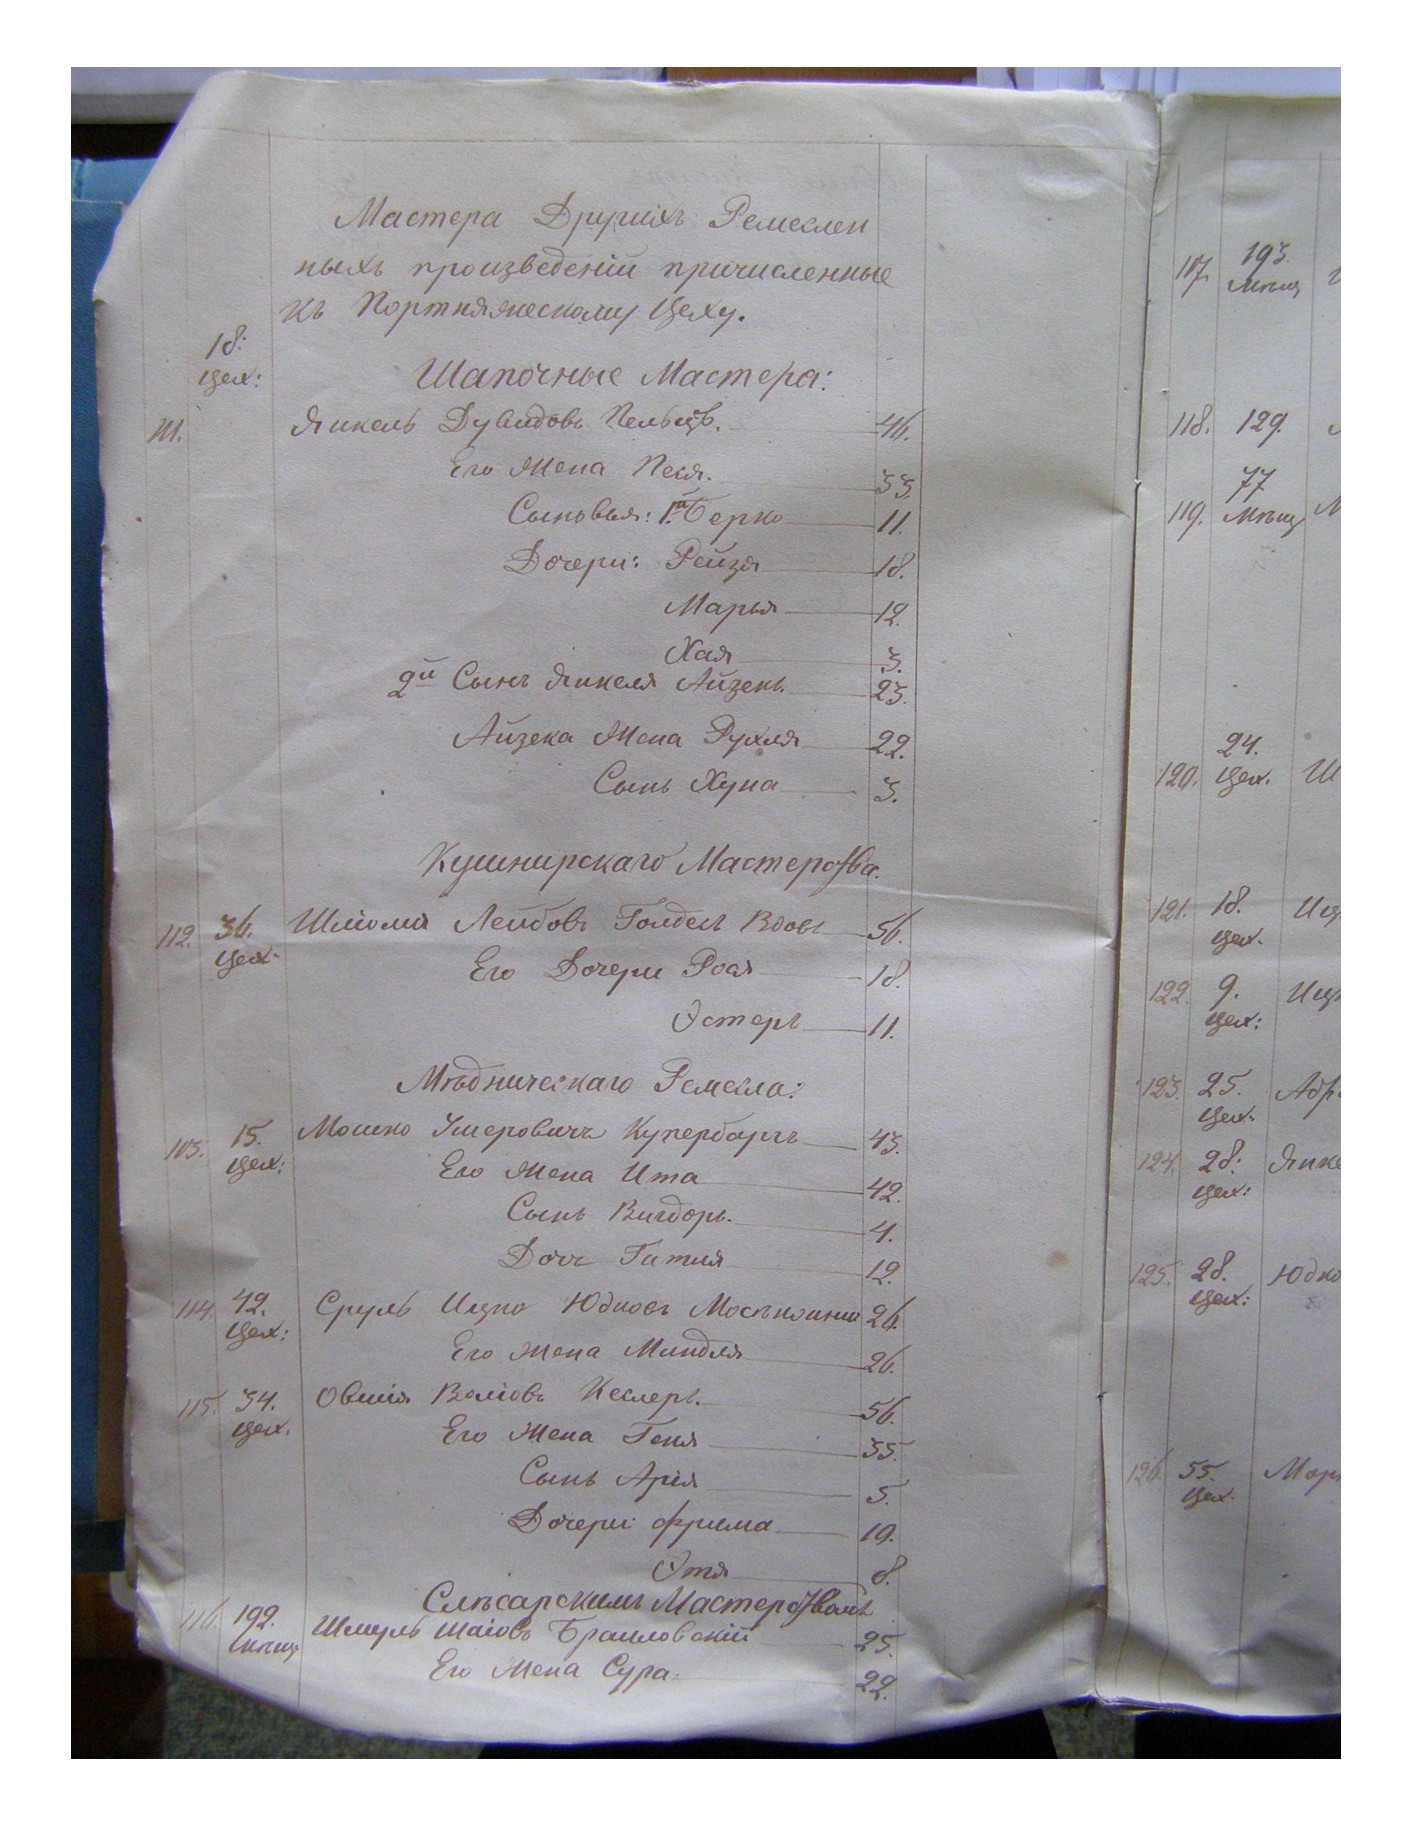 Мастера Другихъ Ремеслен
ныхъ произведеній причисленные
къ Портняжескому Цеху.
18:
цех:
Шапочные Мастера:
111. Янкель Дувидовъ 46.
Его Жена Песя. 33.
Сыновья: 1й Берко 11.
Дочери: Рейзя 18.
Марья 12.
Хая 3.
2й Сынъ Янкеля Айзекъ 23.
Айзека Жена Рухля 22.
Сынъ Хуна 3.
Кушнирскаго Мастерства.
112. 36. Шліома Лейбовъ Голдесъ Вдовъ 56.
цех.
Его Дочери Рося 18.
Эстеръ 11.
Мѣдническаго Ремесла:
113. 15. Мошко Умеровичъ Купербаргъ 43.
цех:
Его Жена Ита 42.
Сынъ Вигдоръ. 4.
Дочь Гитля 12.
114. 42. Сруль Ицко Юдковъ 26.
цех:
Его Жена Миндля 26.
115. 34. Овшія Волковъ Кеслеръ. 56.
цех.
Его Жена Геня 35.
Сынъ Арія 5.
Дочери: Фрима 19.
Этя 8.
Слѣсарскимъ Мастерствомъ
116. 192. Шмуль Шаіовъ Браиловскій 25.
мѣщ
Его Жена Сура. 22.
193.
117. мѣщ
118. 129.
77
119. мѣщ
24.
120. цех. Ш
121. 18. Иц
цех.
122. 9. Иц
цех:
123. 25. Абр
цех.
124. 28: Янке
цех:
125. 28. Юдко
цех:
126. 55. Мор
цех.